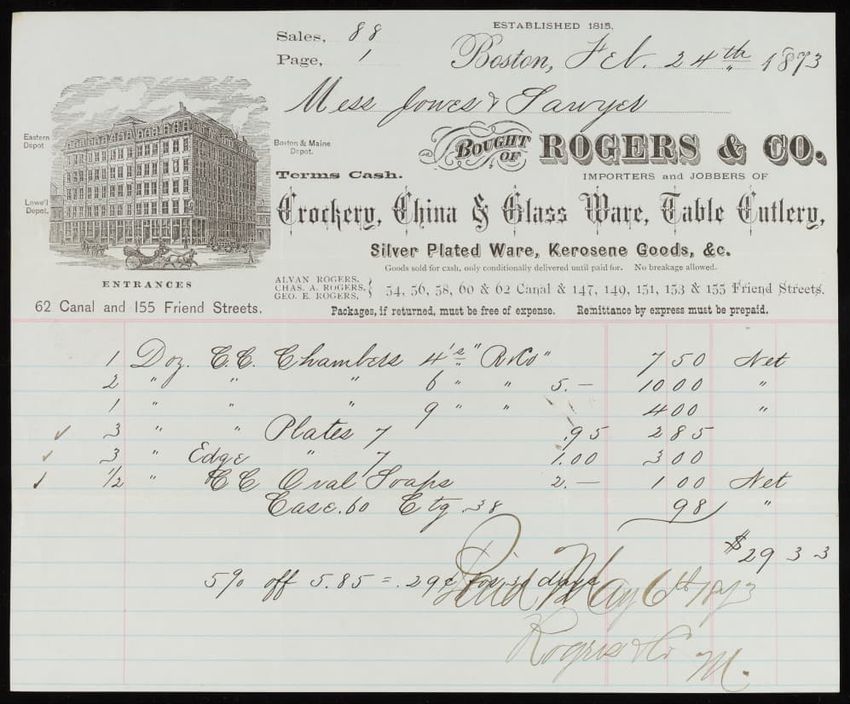 ESTABLISHED 1815.
Sales, 88
Page, 1
Boston, Feb. 24th 1873
Mess Jones & Sawyer
Eastern Depot
Boston & Maine Depot.
Lowe'l Depot.
BOUGHT OF ROGERS & CO.
Terms Cash.
IMPORTERS and JOBBERS OF
Crockery, China & Glass Ware, Table Cutlery,
Silver Plated Ware, Kerosene Goods, &c.
Goods sold for cash, only conditionally delivered until paid for. No breakage allowed.
ENTRANCES
62 Canal and 155 Friend Streets.
ALVAN ROGERS,
CHAS. A. ROGERS,
GEO. E. ROGERS,
54, 56, 58, 60 & 62 Canal & 147, 149, 151, 153 & 155 Friend Streets.
Packages, if returned, must be free of expense. Remittance by express must be prepaid.
1 Doz. C.C. Chambers 4's "R&Co" 7 50 Net
2 " " " 6 " " 5.— 10 00 "
1 " " " 9 " " 4 00 "
✓ 3 " " Plates 7 .95 2 85
✓ 3 " Edge " 7 1.00 3 00
✓ 1/2 " CC Oval Soaps 2.— 1 00 Net
Case .60 Ctg .38 98 "
$29 33
5% off 5.85 = .29c for 30 days
Paid May 6th 1873
Rogers & Co
M.